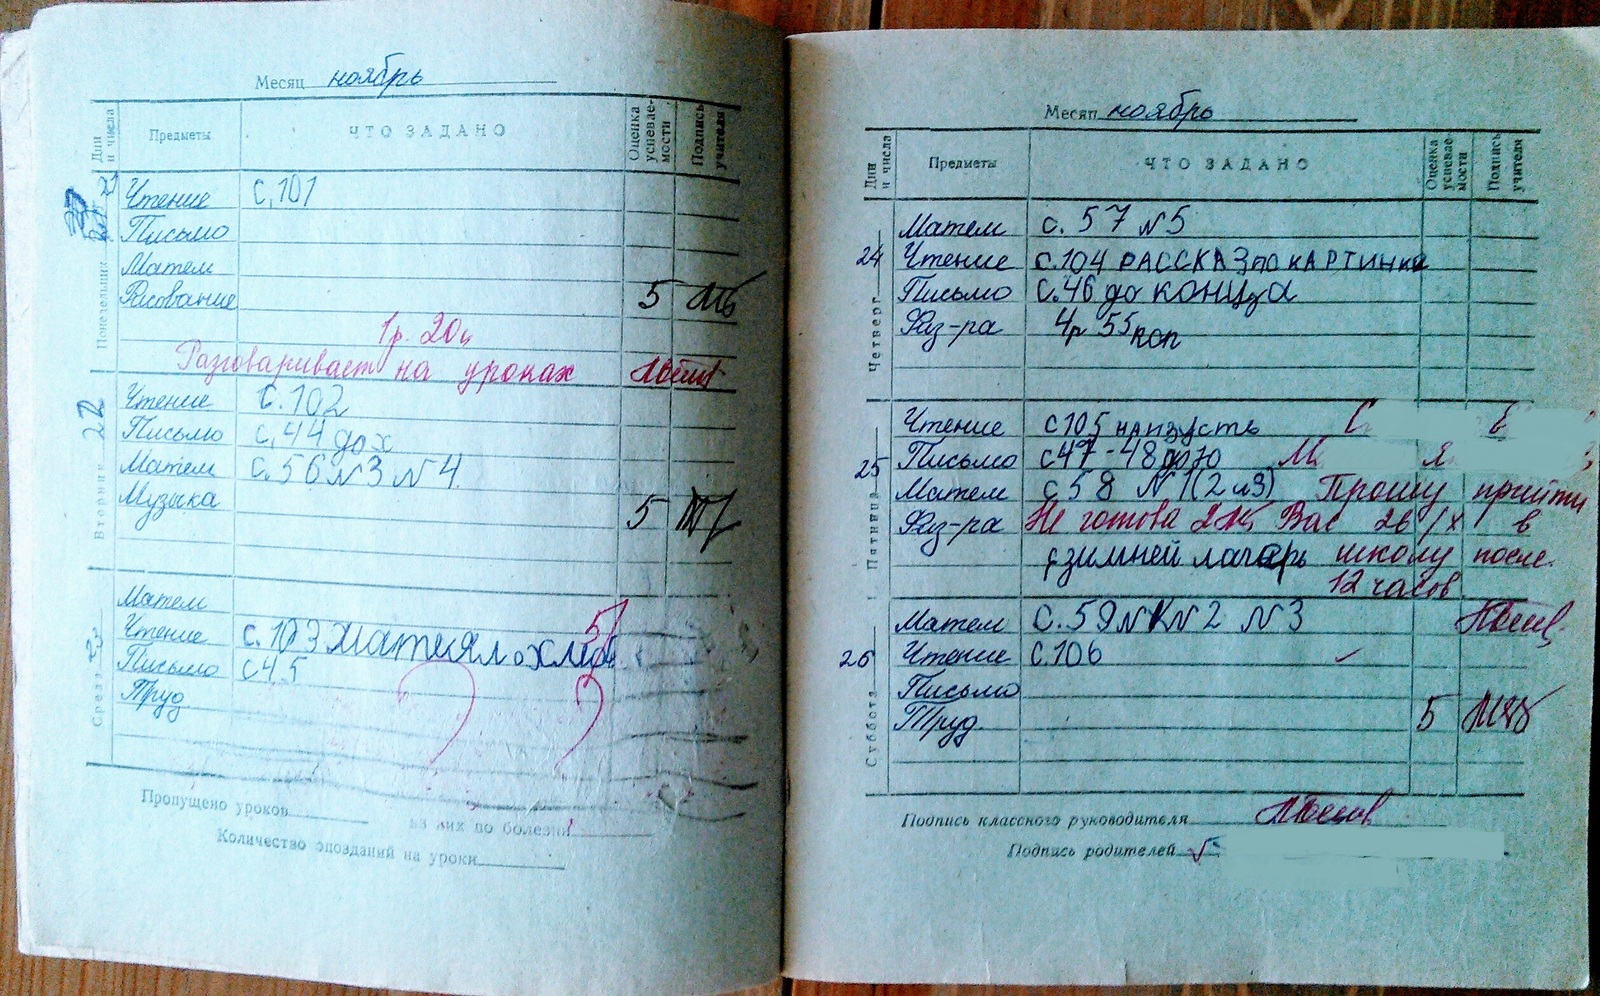 Месяц ноябрь
Дни и числа Предметы ЧТО ЗАДАНО Оценка успеваемости Подпись учителя
Понедельник
Чтение с. 101
Письмо
Матем
Рисование 5
1р. 20
Разговаривает на уроках
Вторник 22
Чтение с. 102
Письмо с. 44 до х
Матем с. 56 №3 №4
Музыка 5
Среда 23
Матем
Чтение с. 103 5
Письмо с 45
Труд
Пропущено уроков из них по болезни
Количество опозданий на уроки
Месяц ноябрь
Дни и числа Предметы ЧТО ЗАДАНО Оценка успеваемости Подпись учителя
Четверг 24
Матем с. 57 №5
Чтение с. 104 РАССКАЗ ПО КАРТИНКЕ
Письмо с. 46 до конца
Физ-ра 4р 55 коп
Пятница 25
Чтение с 105
Письмо с 47-48
Матем с 58 №1 (2 и 3) Прошу прийти
Физ-ра Не готова Вас 26/X в
зимней лагерь школу после
12 часов
Суббота 26
Матем с. 59 №2 №3
Чтение с. 106
Письмо
Труд 5
Подпись классного руководителя
Подпись родителей